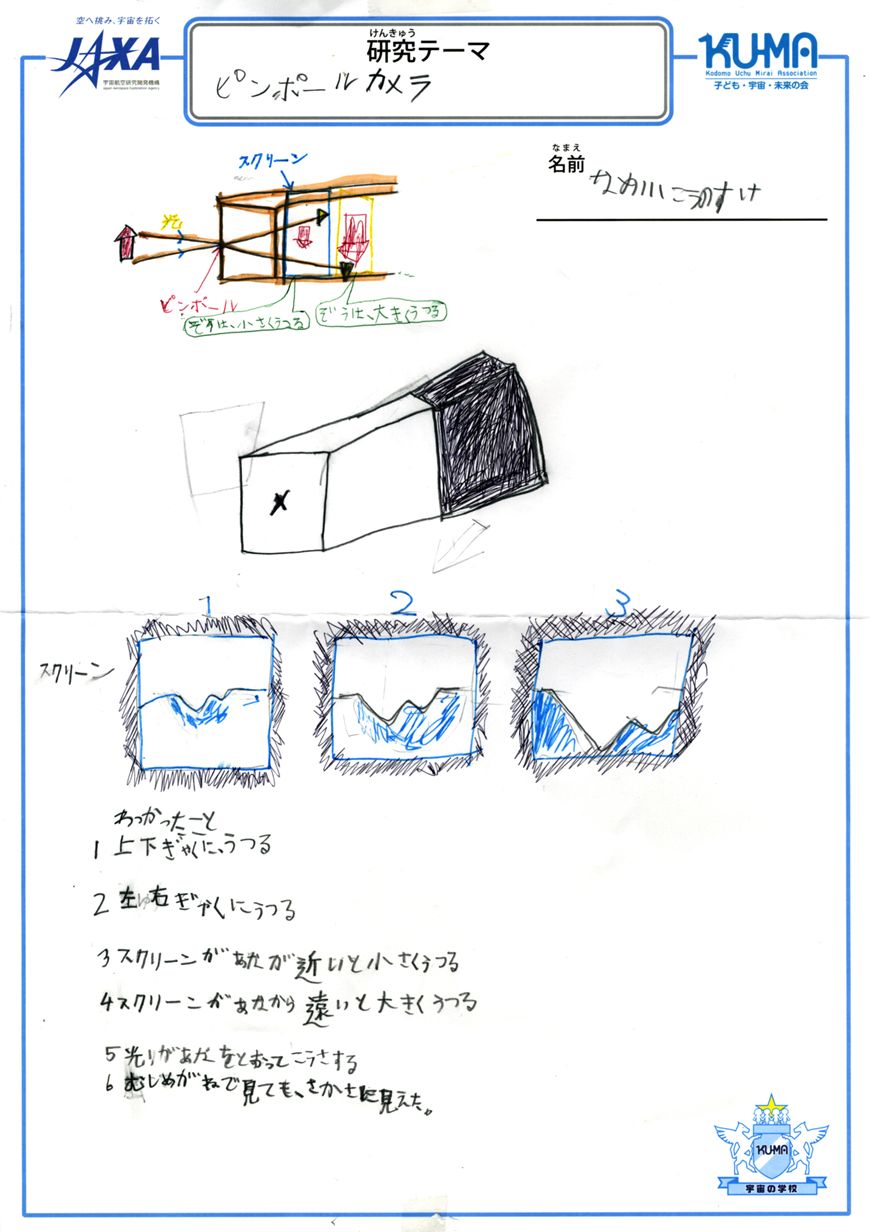 空へ挑み、宇宙を拓く
JAXA
宇宙航空研究開発機構
Japan Aerospace Exploration Agency
けんきゅう
研究テーマ
ピンボールカメラ
KU-MA
Kodomo Uchu Mirai Association
子ども・宇宙・未来の会
なまえ
名前
こうのすけ
スクリーン
光
ピンボール
ぞうは、小さくうつる
ぞうは、大きくうつる
1 2 3
スクリーン
わかったこと
1 上下ぎゃくに、うつる
2 左右ぎゃくにうつる
3 スクリーンがあなが近いと小さくうつる
4 スクリーンがあなから遠いと大きくうつる
5 光りがあなをとおってこうさする
6 むしめがねで見ても、さかさに見えた。
KU-MA
宇宙の学校